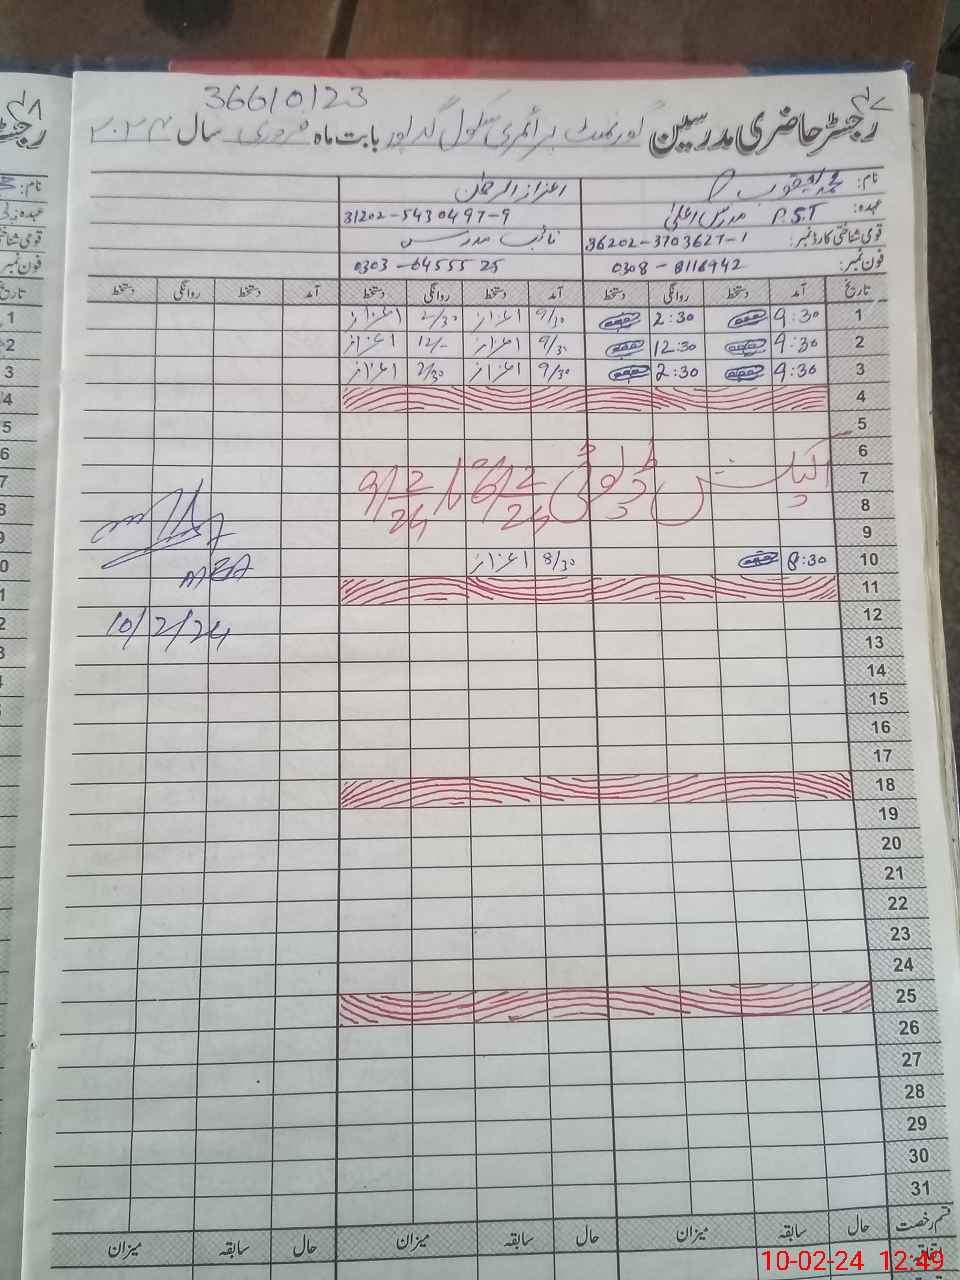 36610123
رجسٹر حاضری مدرسین گورنمنٹ پرائمری سکول گدپور بابت ماہ فروری سال ۲۰۲۴
نام: محمد یعقوب اعزاز الرحمان
عہدہ: P.S.T مدرس اعلیٰ 31202-5430497-9
قومی شناختی کارڈ نمبر: 36202-3703627-1 نائب مدرس
فون نمبر: 0308-8116942 0303-6455525
تاریخ آمد دستخط روانگی دستخط آمد دستخط روانگی دستخط آمد دستخط روانگی دستخط
1 9:30 2:30 9/30 اعزاز 2/30 اعزاز
2 9:30 12:30 9/30 اعزاز 12/- اعزاز
3 9:30 2:30 9/30 اعزاز 2/30 اعزاز
4
5
6
7 الیکشن ڈیوٹی 6/2/24 تا 9/2/24
8
9
10 8:30 8/30 اعزاز
MEA
11
12
10/2/24
13
14
15
16
17
18
19
20
21
22
23
24
25
26
27
28
29
30
31
قسم رخصت حال سابقہ میزان حال سابقہ میزان حال سابقہ میزان
اتفاقیہ
10-02-24 12:49